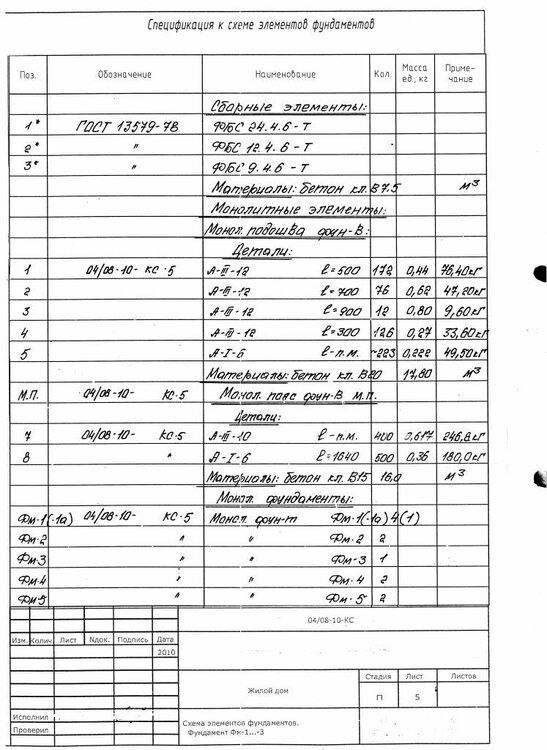 Спецификация к схеме элементов фундаментов
Поз. Обозначение Наименование Кол. Масса ед., кг Приме-чание
Сборные элементы:
1* ГОСТ 13579-78 ФБС 24.4.6-Т
2* " ФБС 12.4.6-Т
3* " ФБС 9.4.6-Т
Материалы: бетон кл. В7.5 м³
Монолитные элементы:
Монол. подошва фун-в:
Детали:
1 04/08-10- КС-5 А-III-12 ℓ=500 172 0,44 76,40кг
2 А-III-12 ℓ=700 76 0,62 47,20кг
3 А-III-12 ℓ=900 12 0,80 9,60кг
4 А-III-12 ℓ=300 126 0,27 33,60кг
5 А-I-6 ℓ-п.м. ~223 0,222 49,50кг
Материалы: бетон кл. В20 17,80 м³
М.П. 04/08-10- КС-5 Монол. пояс фун-в М.П.
Детали:
7 04/08-10- КС-5 А-III-10 ℓ-п.м. 400 0,617 246,8кг
8 " А-I-6 ℓ=1640 500 0,36 180,0кг
Материалы: бетон кл. В15 16,0 м³
Монол. фундаменты:
Фм-1(-1а) 04/08-10- КС-5 Монол. фун-т Фм-1(-1а) 4(1)
Фм-2 " " Фм-2 2
Фм-3 " " Фм-3 1
Фм-4 " " Фм-4 2
Фм-5 " " Фм-5 2
04/08-10-КС
Изм. Колич. Лист Nдок. Подпись Дата
2010
Жилой дом
Стадия Лист Листов
П 5
Исполнил
Проверил
Схема элементов фундаментов.
Фундамент Фм-1...-3